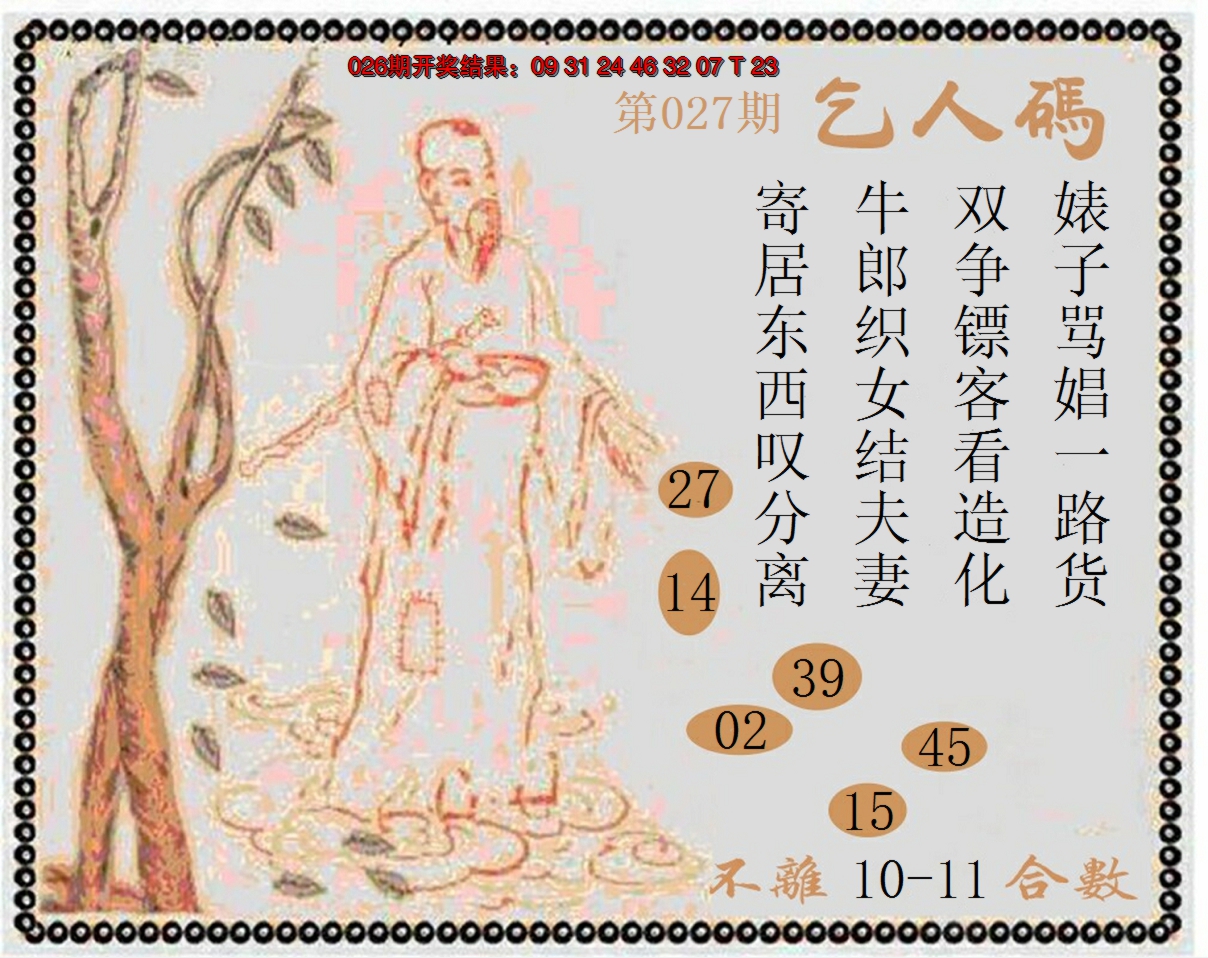 026期开奖结果：09 31 24 46 32 07 T 23
第027期 乞人碼
婊子骂娼一路货
双争镖客看造化
牛郎织女结夫妻
寄居东西叹分离
27
14
39
02
45
15
不離 10-11 合數